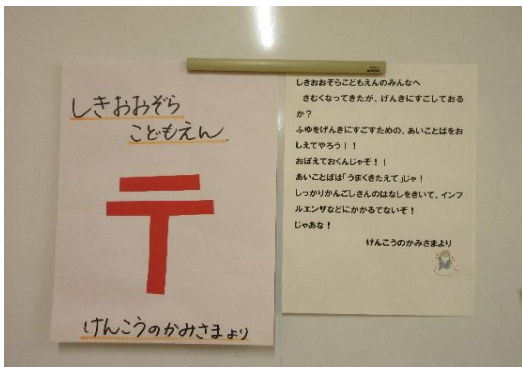 しきおおぞら
こどもえん
〒
けんこうのかみさまより
しきおおぞらこどもえんのみんなへ
さむくなってきたが、げんきにすごしておる
か？
ふゆをげんきにすごすための、あいことばをお
しえてやろう！！
おぼえておくんじゃぞ！！
あいことばは「うまくきたえて」じゃ！
しっかりかんごしさんのはなしをきいて、インフ
ルエンザなどにかかるでないぞ！
じゃあな！
けんこうのかみさまより